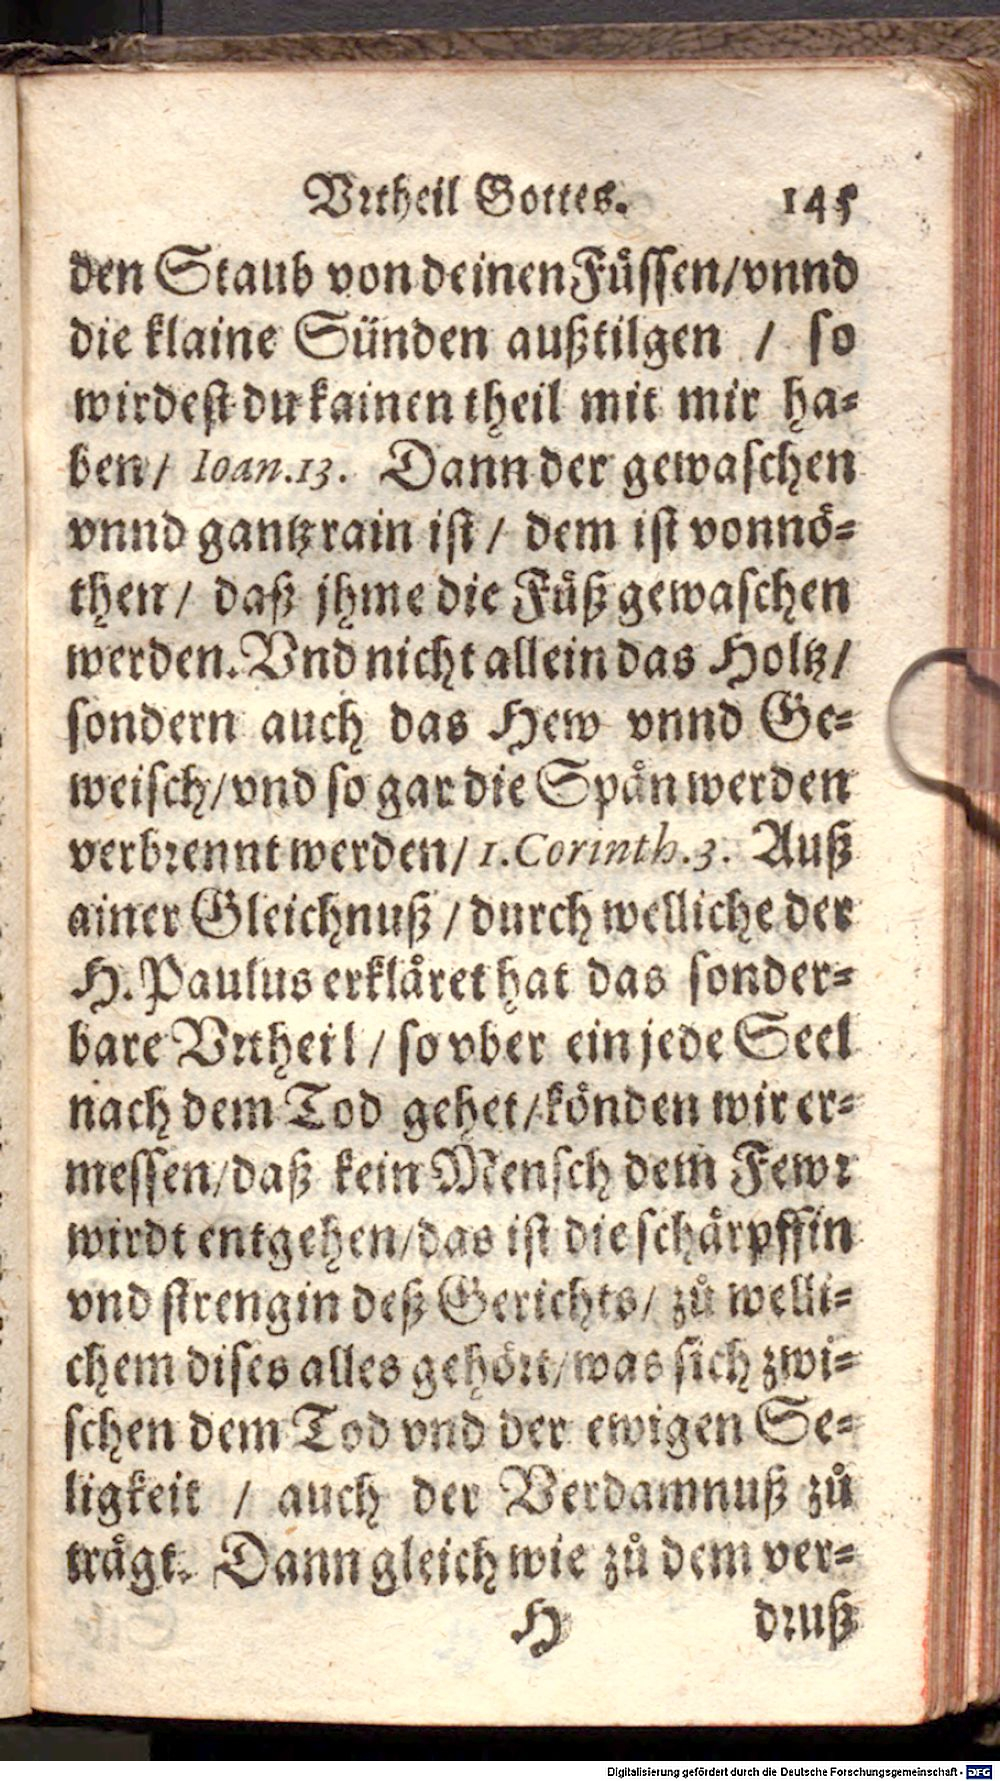 Vrtheil Gottes. 145
den Staub von deinen Füssen/vnnd
die klaine Sünden außtilgen / so
wirdest du kainen theil mit mir ha-
ben/ Ioan.13. Dann der gewaschen
vnnd gantz rain ist/ dem ist vonnö-
then/ daß jhme die Füß gewaschen
werden. Vnd nicht allein das Holtz/
sondern auch das Hew vnnd Ge-
weisch/vnd so gar die Spån werden
verbrennt werden/ 1.Corinth.3. Auß
ainer Gleichnuß/durch welliche der
H. Paulus erklåret hat das sonder-
bare Vrtheil/ so vber ein jede Seel
nach dem Tod gehet/könden wir er-
messen/daß kein Mensch dem Fewr
wirdt entgehen/das ist die schårpffin
vnd strengin deß Gerichts/ zů welli-
chem dises alles gehört/was sich zwi-
schen dem Tod vnd der ewigen Se-
ligkeit / auch der Verdamnuß zů
trågt. Dann gleich wie zů dem ver-
H druß
Digitalisierung gefördert durch die Deutsche Forschungsgemeinschaft - DFG